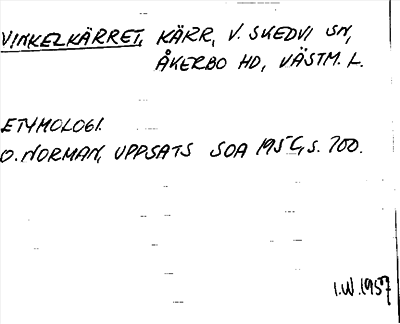 VINKELKÄRRET, KÄRR, V. SKEDVI SN,
ÅKERBO HD, VÄSTM. L.
ETYMOLOGI.
O. NORMAN, UPPSATS SOA 195 S. 100.
I.W. 1957